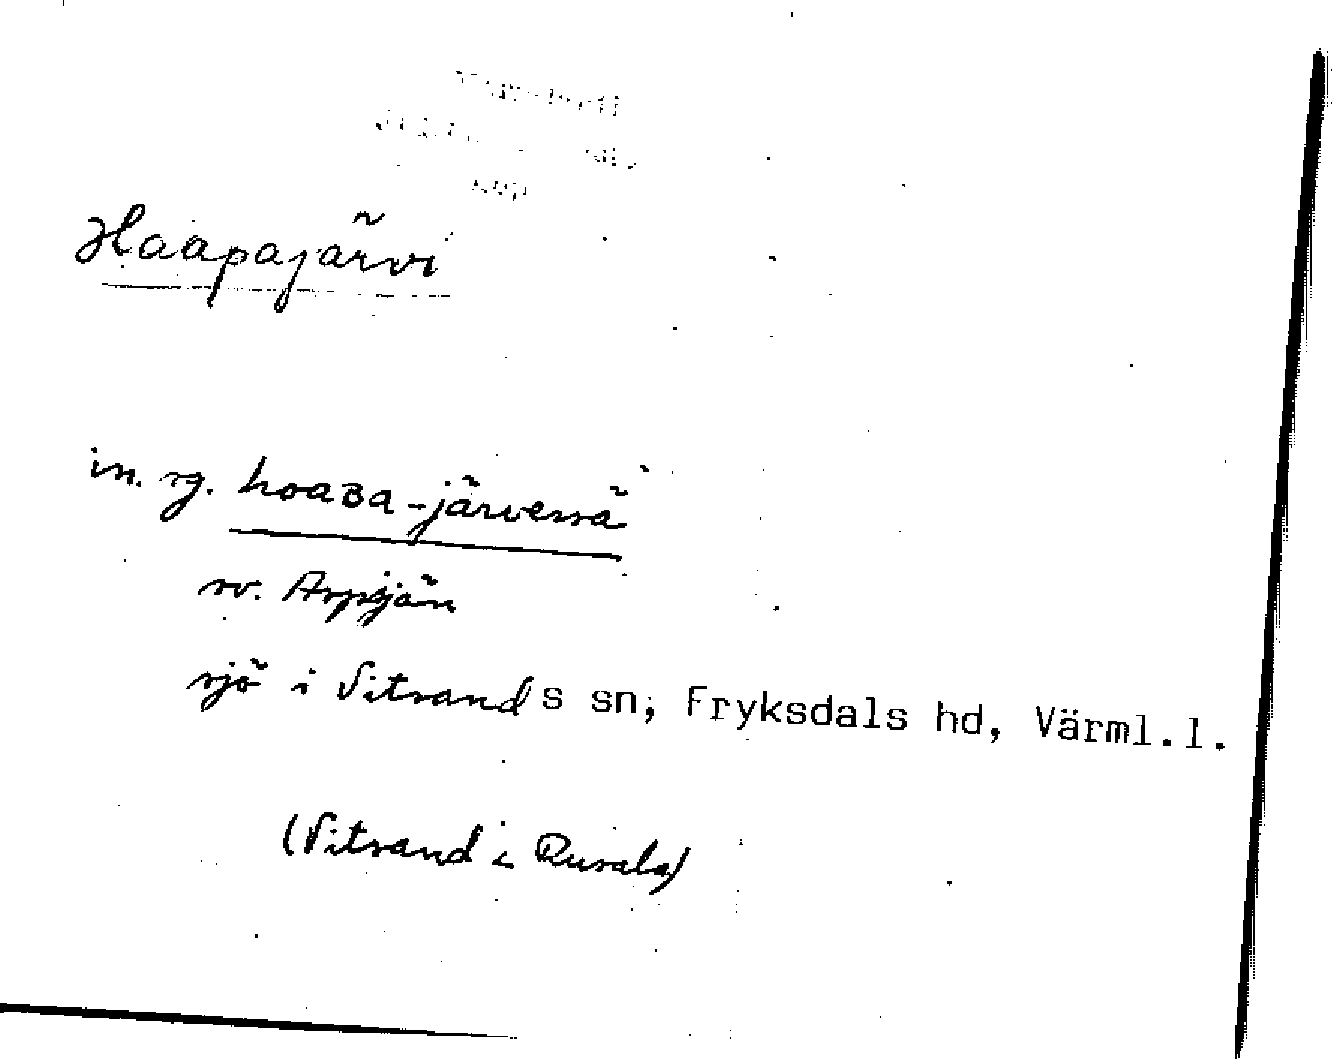 Haapajärvi
in. sg. hoaʙa-järvessä
rv. Aspsjön
sjö i Vitsands sn, Fryksdals hd, Värml.l.
(Vitsand i Rusala)